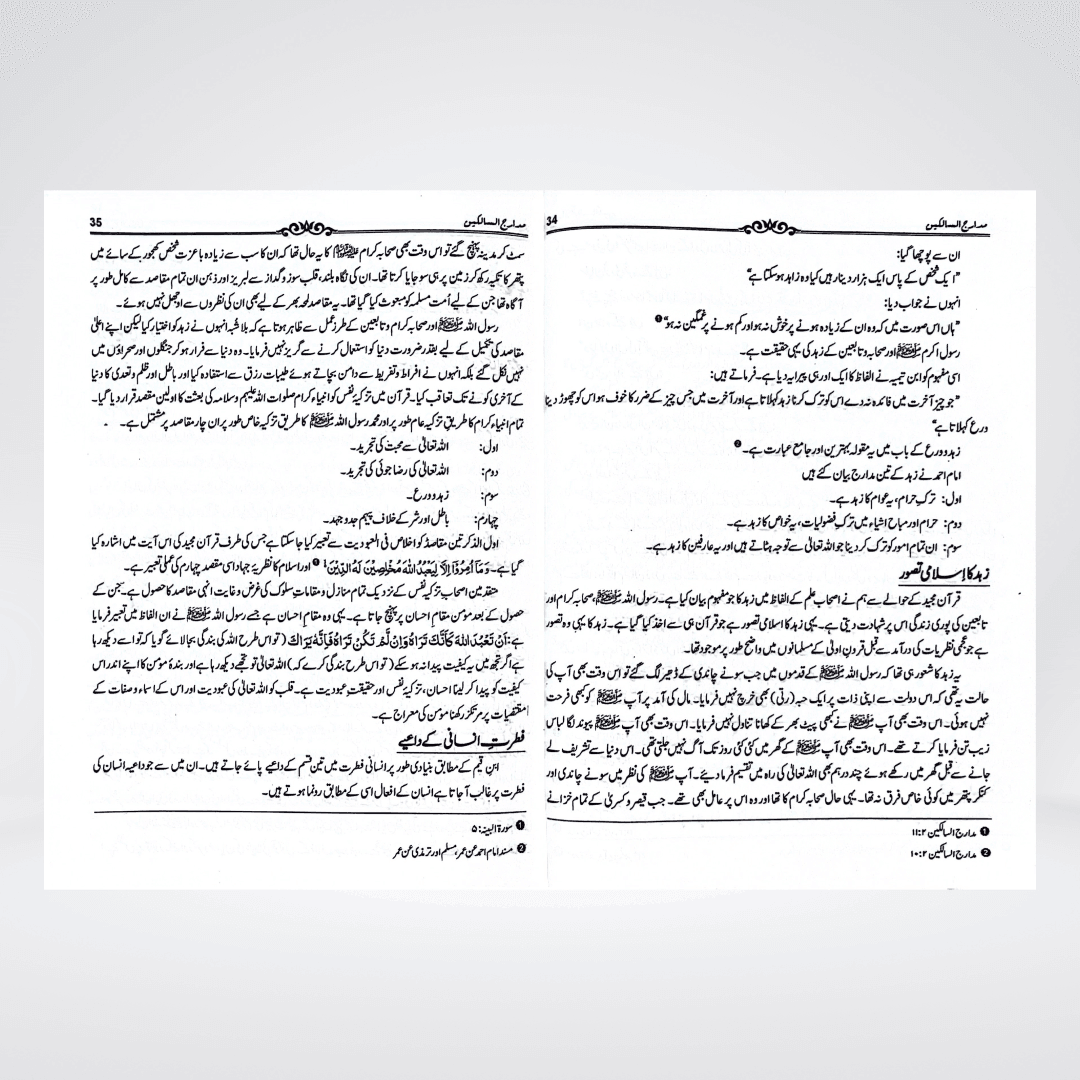 مدارج السالکین
34
ان سے پوچھا گیا:
"ایک شخص کے پاس ایک ہزار دینار ہیں کیا وہ زاہد ہو سکتا ہے"
انہوں نے جواب دیا:
"ہاں اس صورت میں کہ وہ ان کے زیادہ ہونے پر خوش نہ ہو اور کم ہونے پر غمگین نہ ہو" ❶
رسول اکرم ﷺ اور صحابہ و تابعین کے زہد کی یہی حقیقت ہے۔
اسی مفہوم کو ابن تیمیہ نے الفاظ کا ایک اور ہی پیرایہ دیا ہے۔ فرماتے ہیں:
"جو چیز آخرت میں فائدہ نہ دے اس کو ترک کرنا زہد کہلاتا ہے اور آخرت میں جس چیز کے ضرر کا خوف ہو اس کو چھوڑ دینا
ورع کہلاتا ہے"
زہد و ورع کے باب میں یہ مقولہ بہترین اور جامع عبارت ہے۔ ❷
امام احمد نے زہد کے تین مدارج بیان کئے ہیں
اول: ترکِ حرام، یہ عوام کا زہد ہے۔
دوم: حرام اور مباح اشیاء میں ترکِ فضولیات، یہ خواص کا زہد ہے۔
سوم: ان تمام امور کو ترک کر دینا جو اللہ تعالیٰ سے توجہ ہٹاتے ہیں اور یہ عارفین کا زہد ہے۔
زہد کا اسلامی تصور
قرآن مجید کے حوالے سے ہم نے اصحاب علم کے الفاظ میں زہد کا جو مفہوم بیان کیا ہے۔ رسول اللہ ﷺ، صحابہ کرام اور
تابعین کی پوری زندگی اس پر شہادت دیتی ہے۔ یہی زہد کا اسلامی تصور ہے جو قرآن ہی سے اخذ کیا گیا ہے۔ زہد کا یہی وہ تصور
ہے جو عجمی نظریات کی درآمد سے قبل قرونِ اولیٰ کے مسلمانوں میں واضح طور پر موجود تھا۔
یہ زہد کا شعور ہی تھا کہ رسول اللہ ﷺ کے قدموں میں جب سونے چاندی کے ڈھیر لگ گئے تو اس وقت بھی آپ کی
حالت یہ تھی کہ اس دولت سے اپنی ذات پر ایک حبہ (رتی) بھی خرچ نہیں فرمایا۔ مال کی آمد پر آپ ﷺ کو کبھی فرحت
نہیں ہوئی۔ اس وقت بھی آپ ﷺ نے کبھی پیٹ بھر کے کھانا تناول نہیں فرمایا۔ اس وقت بھی آپ ﷺ پیوند لگا لباس
زیب تن فرمایا کرتے تھے۔ اس وقت بھی آپ ﷺ کے گھر میں کئی کئی روز تک آگ نہیں جلتی تھی۔ اس دنیا سے تشریف لے
جانے سے قبل گھر میں رکھے ہوئے چند درہم بھی اللہ تعالیٰ کی راہ میں تقسیم فرما دیئے۔ آپ ﷺ کی نظر میں سونے چاندی اور
کنکر پتھر میں کوئی خاص فرق نہ تھا۔ یہی حال صحابہ کرام کا تھا اور وہ اس پر عامل بھی تھے۔ جب قیصر و کسریٰ کے تمام خزانے
❶ مدارج السالکین ۲:۱۱
❷ مدارج السالکین ۲:۱۰
مدارج السالکین
35
سمٹ کر مدینہ پہنچ گئے تو اس وقت بھی صحابہ کرام کا یہ حال تھا کہ ان کا سب سے زیادہ باعزت شخص کھجور کے سائے میں
پتھر کا تکیہ رکھ کر زمین پر ہی سو جایا کرتا تھا۔ ان کی نگاہ بلند، قلب سوز و گداز سے لبریز اور ذہن ان تمام مقاصد سے کامل طور پر
آگاہ تھا جن کے لیے اُمت مسلمہ کو مبعوث کیا گیا تھا۔ یہ مقاصد لمحہ بھر کے لیے بھی ان کی نظروں سے اوجھل نہیں ہوئے۔
رسول اللہ ﷺ اور صحابہ کرام و تابعین کے طرز عمل سے ظاہر ہوتا ہے کہ بلاشبہ انہوں نے زہد کو اختیار کیا لیکن اپنے اعلیٰ
مقاصد کی تکمیل کے لیے بقدر ضرورت دنیا کو استعمال کرنے سے گریز نہیں فرمایا۔ وہ دنیا سے فرار ہو کر جنگلوں اور صحراؤں میں
نہیں نکل گئے بلکہ انہوں نے افراط و تفریط سے دامن بچاتے ہوئے طیبات رزق سے استفادہ کیا اور باطل اور ظلم و تعدی کا دنیا
کے آخری کونے تک تعاقب کیا۔ قرآن میں تزکیہ نفس کو انبیاء کرام صلوات اللہ علیہم وسلامہ کی بعثت کا اولین مقصد قرار دیا گیا۔
تمام انبیاء کرام کا طریق تزکیہ عام طور پر اور محمد رسول اللہ ﷺ کا طریق تزکیہ خاص طور پر ان چار مقاصد پر مشتمل ہے۔
اول: اللہ تعالیٰ سے محبت کی تجرید۔
دوم: اللہ تعالیٰ کی رضا جوئی کی تجرید۔
سوم: زہد و ورع۔
چہارم: باطل اور شر کے خلاف پیہم جدوجہد۔
اول الذکر تین مقاصد کو اخلاص فی العبودیت سے تعبیر کیا جا سکتا ہے جس کی طرف قرآن مجید کی اس آیت میں اشارہ کیا
گیا ہے۔ وَمَا أُمِرُوْا إِلَّا لِيَعْبُدُوا اللهَ مُخْلِصِيْنَ لَهُ الدِّيْنَ ❶ اور اسلام کا نظریۂ جہاد اسی مقصد چہارم کی عملی تعبیر ہے۔
متقدمین اصحاب تزکیہ نفس کے نزدیک تمام منازل و مقامات سلوک کی غرض و غایت انہی مقاصد کا حصول ہے۔ جن کے
حصول کے بعد مومن مقام احسان پر پہنچ جاتا ہے۔ یہی وہ مقام احسان ہے جسے رسول اللہ ﷺ نے ان الفاظ میں تعبیر فرمایا
ہے: أَنْ تَعْبُدَ اللهَ كَأَنَّكَ تَرَاهُ وَإِنْ لَّمْ تَكُنْ تَرَاهُ فَإِنَّهُ يَرَاكَ (تو اس طرح اللہ کی بندگی بجا لائے گویا کہ تو اسے دیکھ رہا
ہے اگر تجھ میں یہ کیفیت پیدا نہ ہو سکے (تو اس طرح بندگی کرے کہ) اللہ تعالیٰ تو تجھے دیکھ رہا ہے اور بندۂ مومن کا اپنے اندر اس
کیفیت کو پیدا کر لینا احسان، تزکیہ نفس اور حقیقت عبودیت ہے۔ قلب کو اللہ تعالیٰ کی عبودیت اور اس کے اسماء و صفات کے
مقتضیات پر مرتکز رکھنا مومن کی معراج ہے۔
فطرتِ انسانی کے داعیے
ابن قیم کے مطابق بنیادی طور پر انسانی فطرت میں تین قسم کے داعیے پائے جاتے ہیں۔ ان میں سے جو داعیہ انسان کی
فطرت پر غالب آ جاتا ہے انسان کے افعال اسی کے مطابق رونما ہوتے ہیں۔
❶ سورۃ البینہ: ۵
❷ مسند امام احمد عن عمر، مسلم اور ترمذی عن عمر